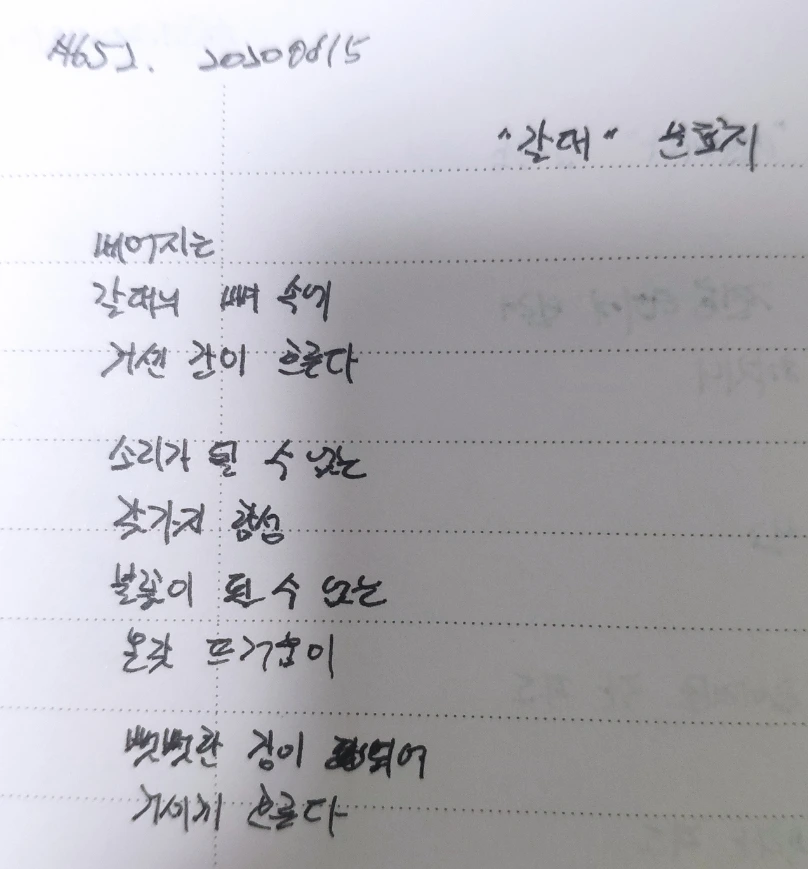 A652. 20200815
"갈대" 문효치
베어지는
갈대의 뼈 속에
거센 강이 흐른다
소리가 될 수 없는
갖가지 함성
불꽃이 될 수 없는
온갖 뜨거움이
뻣뻣한 강이 되어
거세게 흐른다